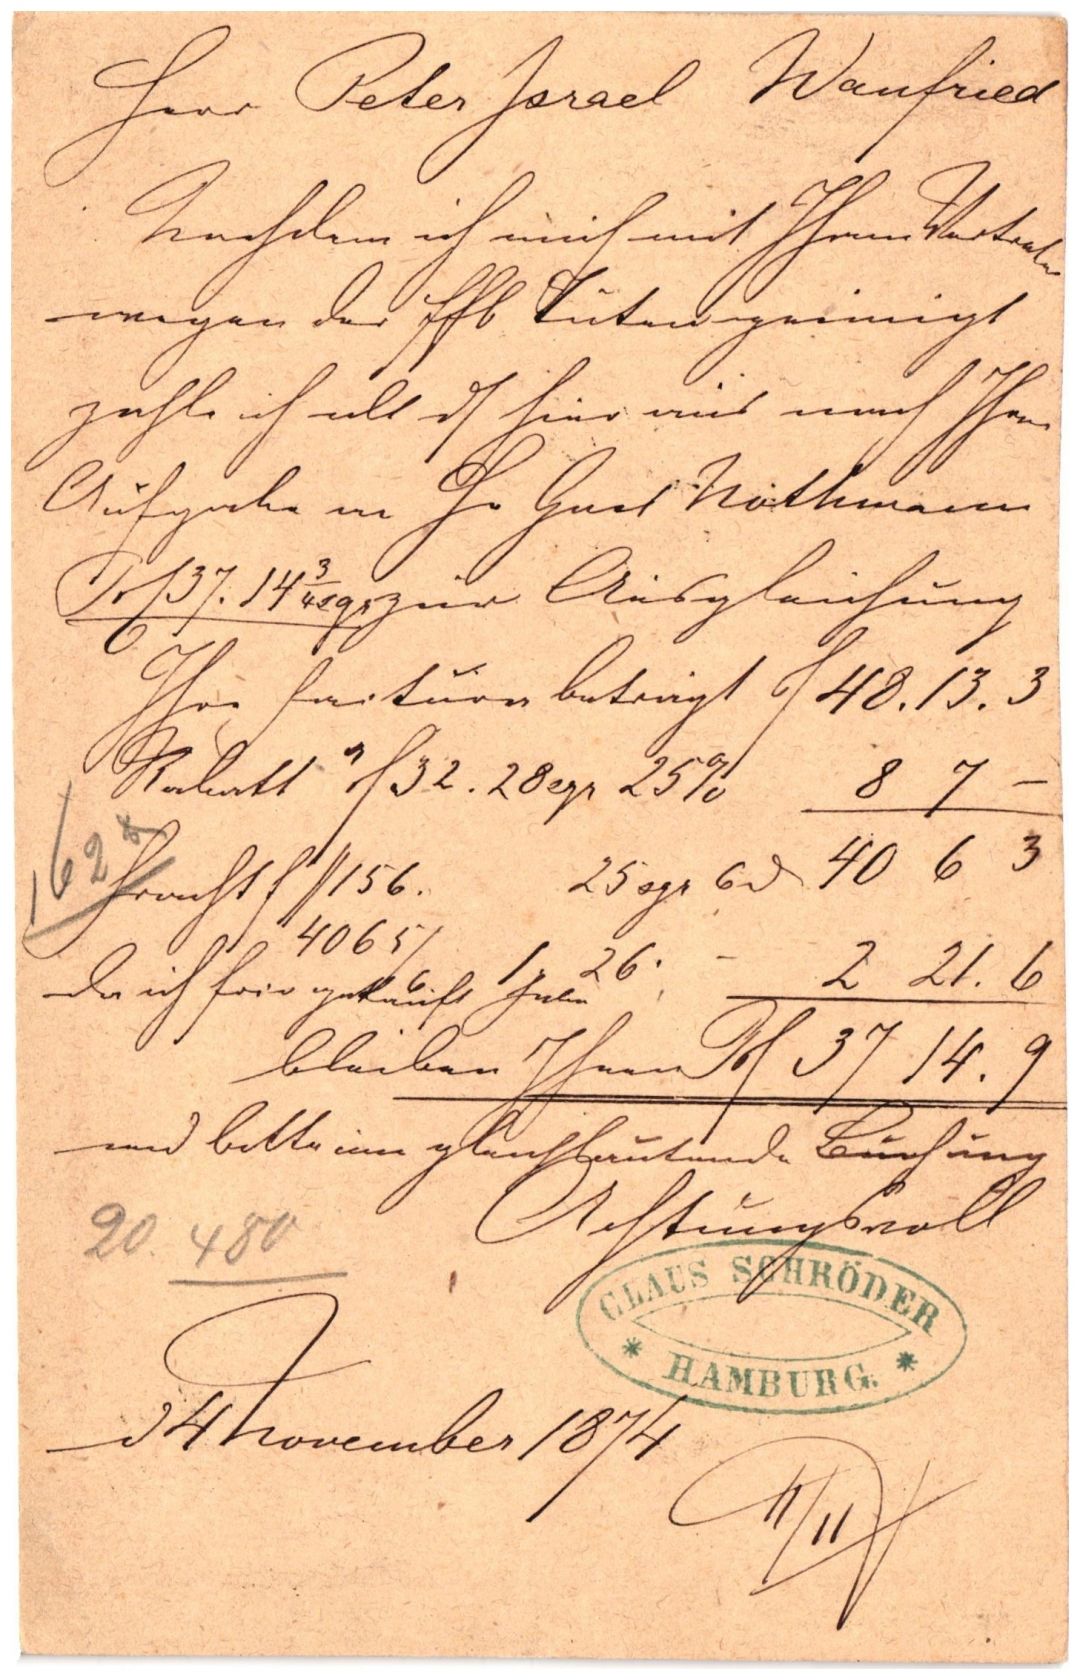 Herr Peter Israel Wanfried
Nachdem ich mich mit Ihrem Vertreter
wegen der Tüten geeinigt
zahle ich hier aus nach Ihrer
Aufgabe an Hr Gust Nothmann
137. 14 3/4 sgr zur Ausgleichung
Ihre factura beträgt 48. 13. 3
Rabatt a 32. 28 sgr 25% 8 7 –
40 6 3
162
Fracht f 156. 25 sgr 6 d
4065/6 1 26. – 2 21. 6
da ich frei gekauft habe
bleiben Ihnen 37 14. 9
und bitte um gleichlautende Buchung
Achtungsvoll
20. 480
CLAUS SCHRÖDER
* HAMBURG. *
d 4 November 1874
11/11